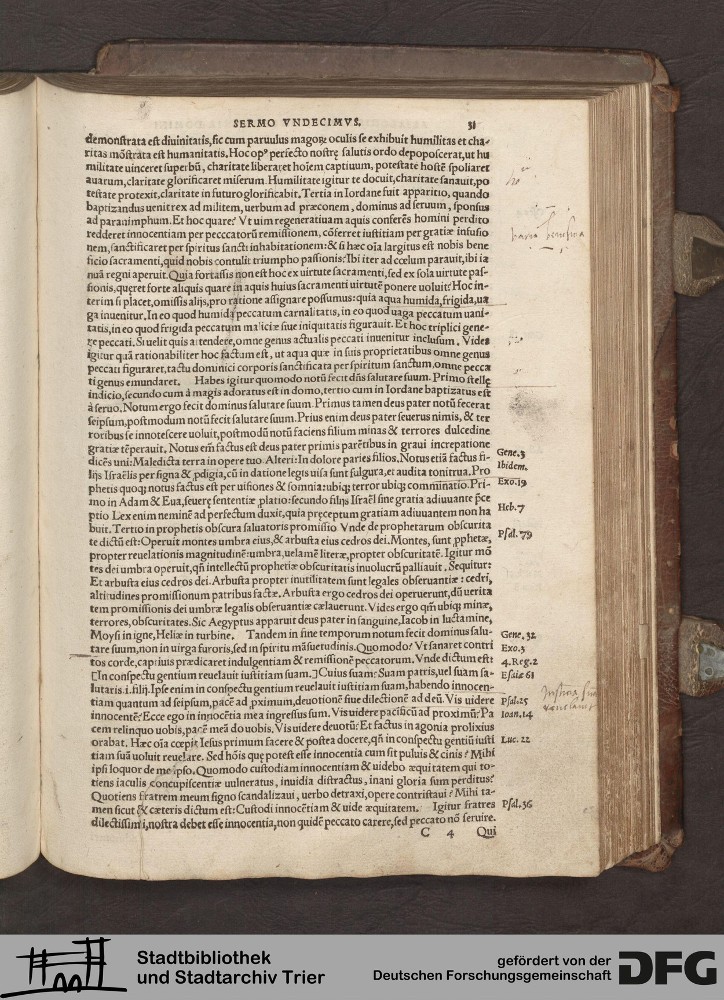 SERMO VNDECIMVS. 31
demonstrata est diuinitatis, sic cum paruulus magoꝝ oculis se exhibuit humilitas et cha-
ritas mõstrata est humanitatis. Hoc opꝰ perfecto nostrę salutis ordo depoposcerat, ut hu
militate uinceret superbũ, charitate liberaret hoĩem captiuum, potestate hostẽ spoliaret
auarum, claritate glorificaret miserum. Humilitate igitur te docuit, charitate sanauit, po
testate protexit, claritate in futuro glorificabit. Tertia in Iordane fuit apparitio, quando
baptizandus uenit rex ad militem, uerbum ad præconem, dominus ad seruum, sponsus
ad paranimphum. Et hoc quare? Vt uim regeneratiuam aquis conferẽs homini perdito
redderet innocentiam per peccatorũ remissionem, cõferret iustitiam per gratiæ infusio
nem, sanctificaret per spiritus sancti inhabitationem: & si hæc oĩa largitus est nobis bene
ficio sacramenti, quid nobis contulit triumpho passionis? Ibi iter ad cœlum parauit, ibi ia
nuã regni aperuit. Quia fortassis non est hoc ex uirtute sacramenti, sed ex sola uirtute pas-
sionis, quęret forte aliquis quare in aquis huius sacramenti uirtutẽ ponere uoluit? Hoc in-
terim si placet, omissis alijs, pro ratione assignare possumus: quia aqua humida, frigida, ua
ga inuenitur. In eo quod humida peccatum carnalitatis, in eo quod uaga peccatum uani-
tatis, in eo quod frigida peccatum maliciæ siue iniquitatis figurauit. Et hoc triplici gene-
re peccati. Si uelit quis attendere, omne genus actualis peccati inuenitur inclusum. Vides
igitur quã rationabiliter hoc factum est, ut aqua quæ in suis proprietatibus omne genus
peccati figuraret, tactu dominici corporis sanctificata per spiritum sanctum, omne pecca
ti genus emundaret. Habes igitur quomodo notũ fecit dñs salutare suum. Primo stellę
indicio, secundo cum à magis adoratus est in domo, tertio cum in Iordane baptizatus est
à seruo. Notum ergo fecit dominus salutare suum. Primus tamen deus pater notũ fecerat
seipsum, postmodum notũ fecit salutare suum. Prius enim deus pater seuerus nimis, & ter
roribus se innotescere uoluit, postmodũ notũ faciens filium minas & terrores dulcedine
gratiæ tẽperauit. Notus em̃ factus est deus pater primis parẽtibus in graui increpatione
dicẽs uni: Maledicta terra in opere tuo. Alteri: In dolore paries filios. Notus etiã factus fi- Gene. 3
lijs Israêlis per signa & ꝓdigia, cũ in datione legis uisa sunt fulgura, et audita tonitrua. Pro Ibidem.
phetis quoqꝫ notus factus est per uisiones & somnia: ubiqꝫ terror ubiqꝫ comminatio. Pri- Exo. 19
mo in Adam & Eua, seuerę sententiæ ꝓlatio: secundo filijs Israêl sine gratia adiuuante p̃ce
ptio Lex enim neminẽ ad perfectum duxit, quia pręceptum gratiam adiuuantem non ha Heb. 7
buit. Tertio in prophetis obscura saluatoris promissio Vnde de prophetarum obscurita
te dictũ est: Operuit montes umbra eius, & arbusta eius cedros dei. Montes, sunt ꝓphetæ, Psal. 79
propter reuelationis magnitudinẽ: umbra, uelamẽ literæ, propter obscuritatẽ. Igitur mõ
tes dei umbra operuit, qñ intellectũ prophetiæ obscuritatis inuolucrũ palliauit. Sequitur:
Et arbusta eius cedros dei. Arbusta propter inutilitatem sunt legales obseruantiæ: cedri,
altitudines promissionum patribus factæ. Arbusta ergo cedros dei operuerunt, dũ uerita
tem promissionis dei umbræ legalis obseruantiæ cælauerunt. Vides ergo qm̃ ubiqꝫ minæ,
terrores, obscuritates. Sic Aegyptus apparuit deus pater in sanguine, Iacob in luctamine,
Moysi in igne, Heliæ in turbine. Tandem in fine temporum notum fecit dominus salu- Gene. 32
tare suum, non in uirga furoris, sed in spiritu mãsuetudinis. Quomodo? Vt sanaret contri Exo. 3
tos corde, captiuis prædicaret indulgentiam & remissionẽ peccatorum. Vnde dictum est: 4. Reg. 2
[In conspectu gentium reuelauit iustitiam suam.] Cuius suam? Suam patris, uel suam sa- Esaiæ 61
lutaris .i. filij. Ipse enim in conspectu gentium reuelauit iustitiam suam, habendo innocen-
tiam quantum ad seipsum, pacẽ ad ꝓximum, deuotionẽ siue dilectionẽ ad deũ. Vis uidere Psal. 25
innocentẽ? Ecce ego in innocẽtia mea ingressus sum. Vis uidere pacificũ ad proximũ? Pa Ioan. 14
cem relinquo uobis, pacẽ meã do uobis. Vis uidere deuotũ? Et factus in agonia prolixius
orabat. Hæc oĩa cœpit Iesus primum facere & postea docere, qñ in conspectu gentiũ iusti Luc. 22
tiam suã uoluit reuelare. Sed hõis quę potest esse innocentia cum sit puluis & cinis? Mihi
ipsi loquor de meipso. Quomodo custodiam innocentiam & uidebo æquitatem qui to-
tiens iaculis concupiscentiæ uulneratus, inuidia distractus, inani gloria sum perditus?
Quotiens fratrem meum signo scandalizaui, uerbo detraxi, opere contristaui? Mihi ta-
men sicut & cæteris dictum est: Custodi innocẽtiam & uide æquitatem. Igitur fratres Psal. 36
dilectissimi, nostra debet esse innocentia, non quidẽ peccato carere, sed peccato nõ seruire.
C 4 Qui
Stadtbibliothek
und Stadtarchiv Trier
gefördert von der
Deutschen Forschungsgemeinschaft
DFG